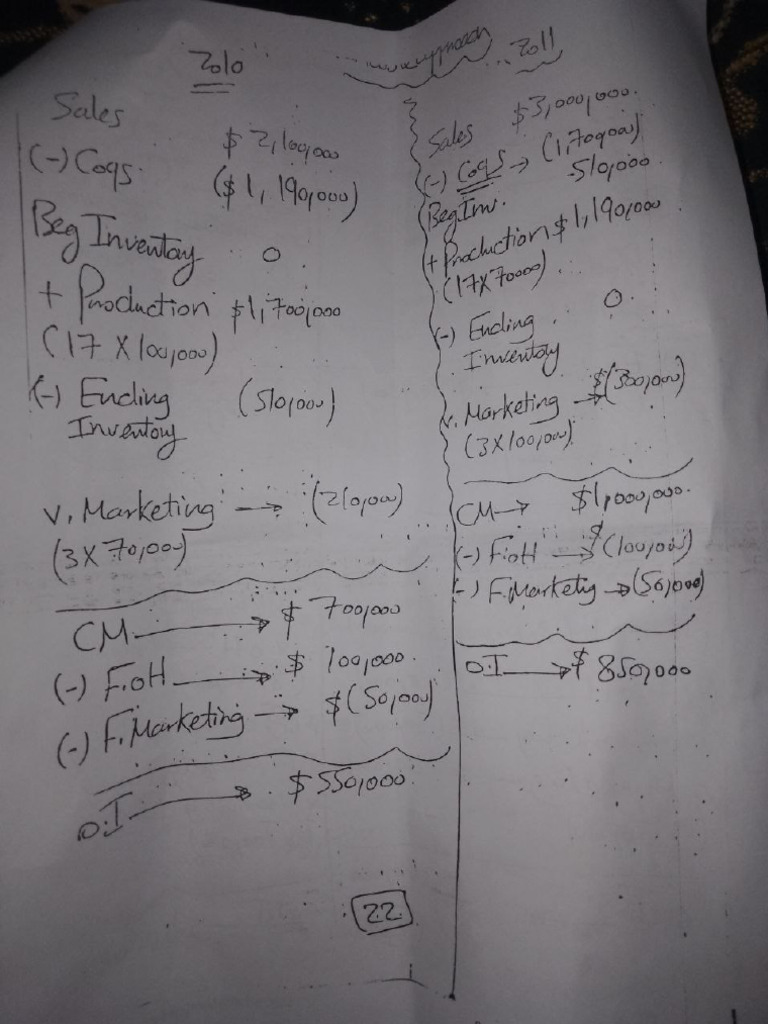 2010
Sales
$2,100,000
(-) Cogs.
($1,190,000)
Beg Inventory
0
+ Production $1,700,000
(17 X 100,000)
(-) Ending (510,000)
Inventory
V. Marketing → (210,000)
(3 X 70,000)
CM → $700,000
(-) F.OH → $100,000.
(-) F. Marketing → $(50,000)
O.I → $550,000
22
2011
Sales $3,000,000.
(-) Cogs → (1,700,000)
Beg Inv. 510,000
+ Production $1,190,000
(17X70000)
(-) Ending 0.
Inventory
v. Marketing → $(300,000)
(3X100,000)
CM → $1,000,000.
(-) F.OH → $(100,000)
(-) F. Marketig → (50,000)
O.I → $850,000